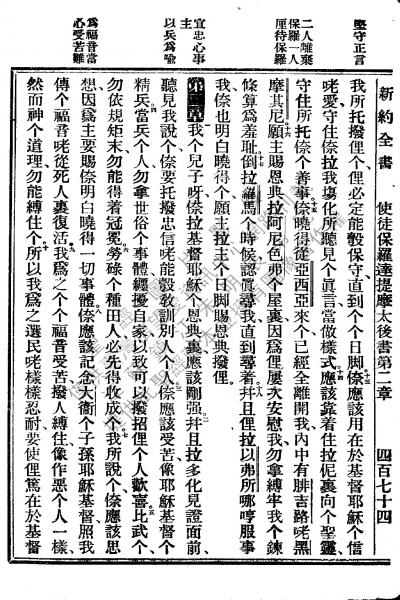 新約全書 使徒保羅達提摩太後書第二章 四百七十四
堅守正言
二人離棄
保羅一人
厚待保羅
宜忠心事
主
以兵爲喻
爲福音當
心受苦難
我所托撥俚个俚必定能彀保守直到个个日脚㑚應該用在於基督耶穌个信
咾愛守住㑚拉我塲化所聽見个眞言當做樣式應該靠着住拉伲裏向个聖靈
守住所托㑚个善事㑚曉得從亞西亞來个已經全離開我內中有腓吉路咾黑
摩其尼願主賜恩典拉阿尼色弗个屋裏因爲俚屢次安慰我勿拿縛牢我个鍊
條算爲羞耻倒拉羅馬个時候認眞尋我直到尋着并且俚拉以弗所哪哼服事
我㑚也明白曉得个願主拉主个日脚賜恩典撥俚
第二章 我个兒子呀㑚拉基督耶穌个恩典裏應該剛强并且拉多化見證面前
聽見我說个㑚要托撥忠信咾能彀敎訓別人个人㑚應該受苦像耶穌基督个
精兵當兵个人勿拿世俗个事體纏擾自家以致可以撥招俚个人歡喜比武个
勿依規矩末勿能得着冠冕勞碌个種田人必先得收成个我所說个㑚應該思
想因爲主要賜㑚明白曉得一切事體㑚應該記念大衛个子孫耶穌基督照我
傳个福音咾從死人裏復活我爲之个个福音受苦撥人縛住像作惡个人一樣
然而神个道理勿能縛住个所以我爲之選民咾樣樣忍耐要使俚篤在於基督